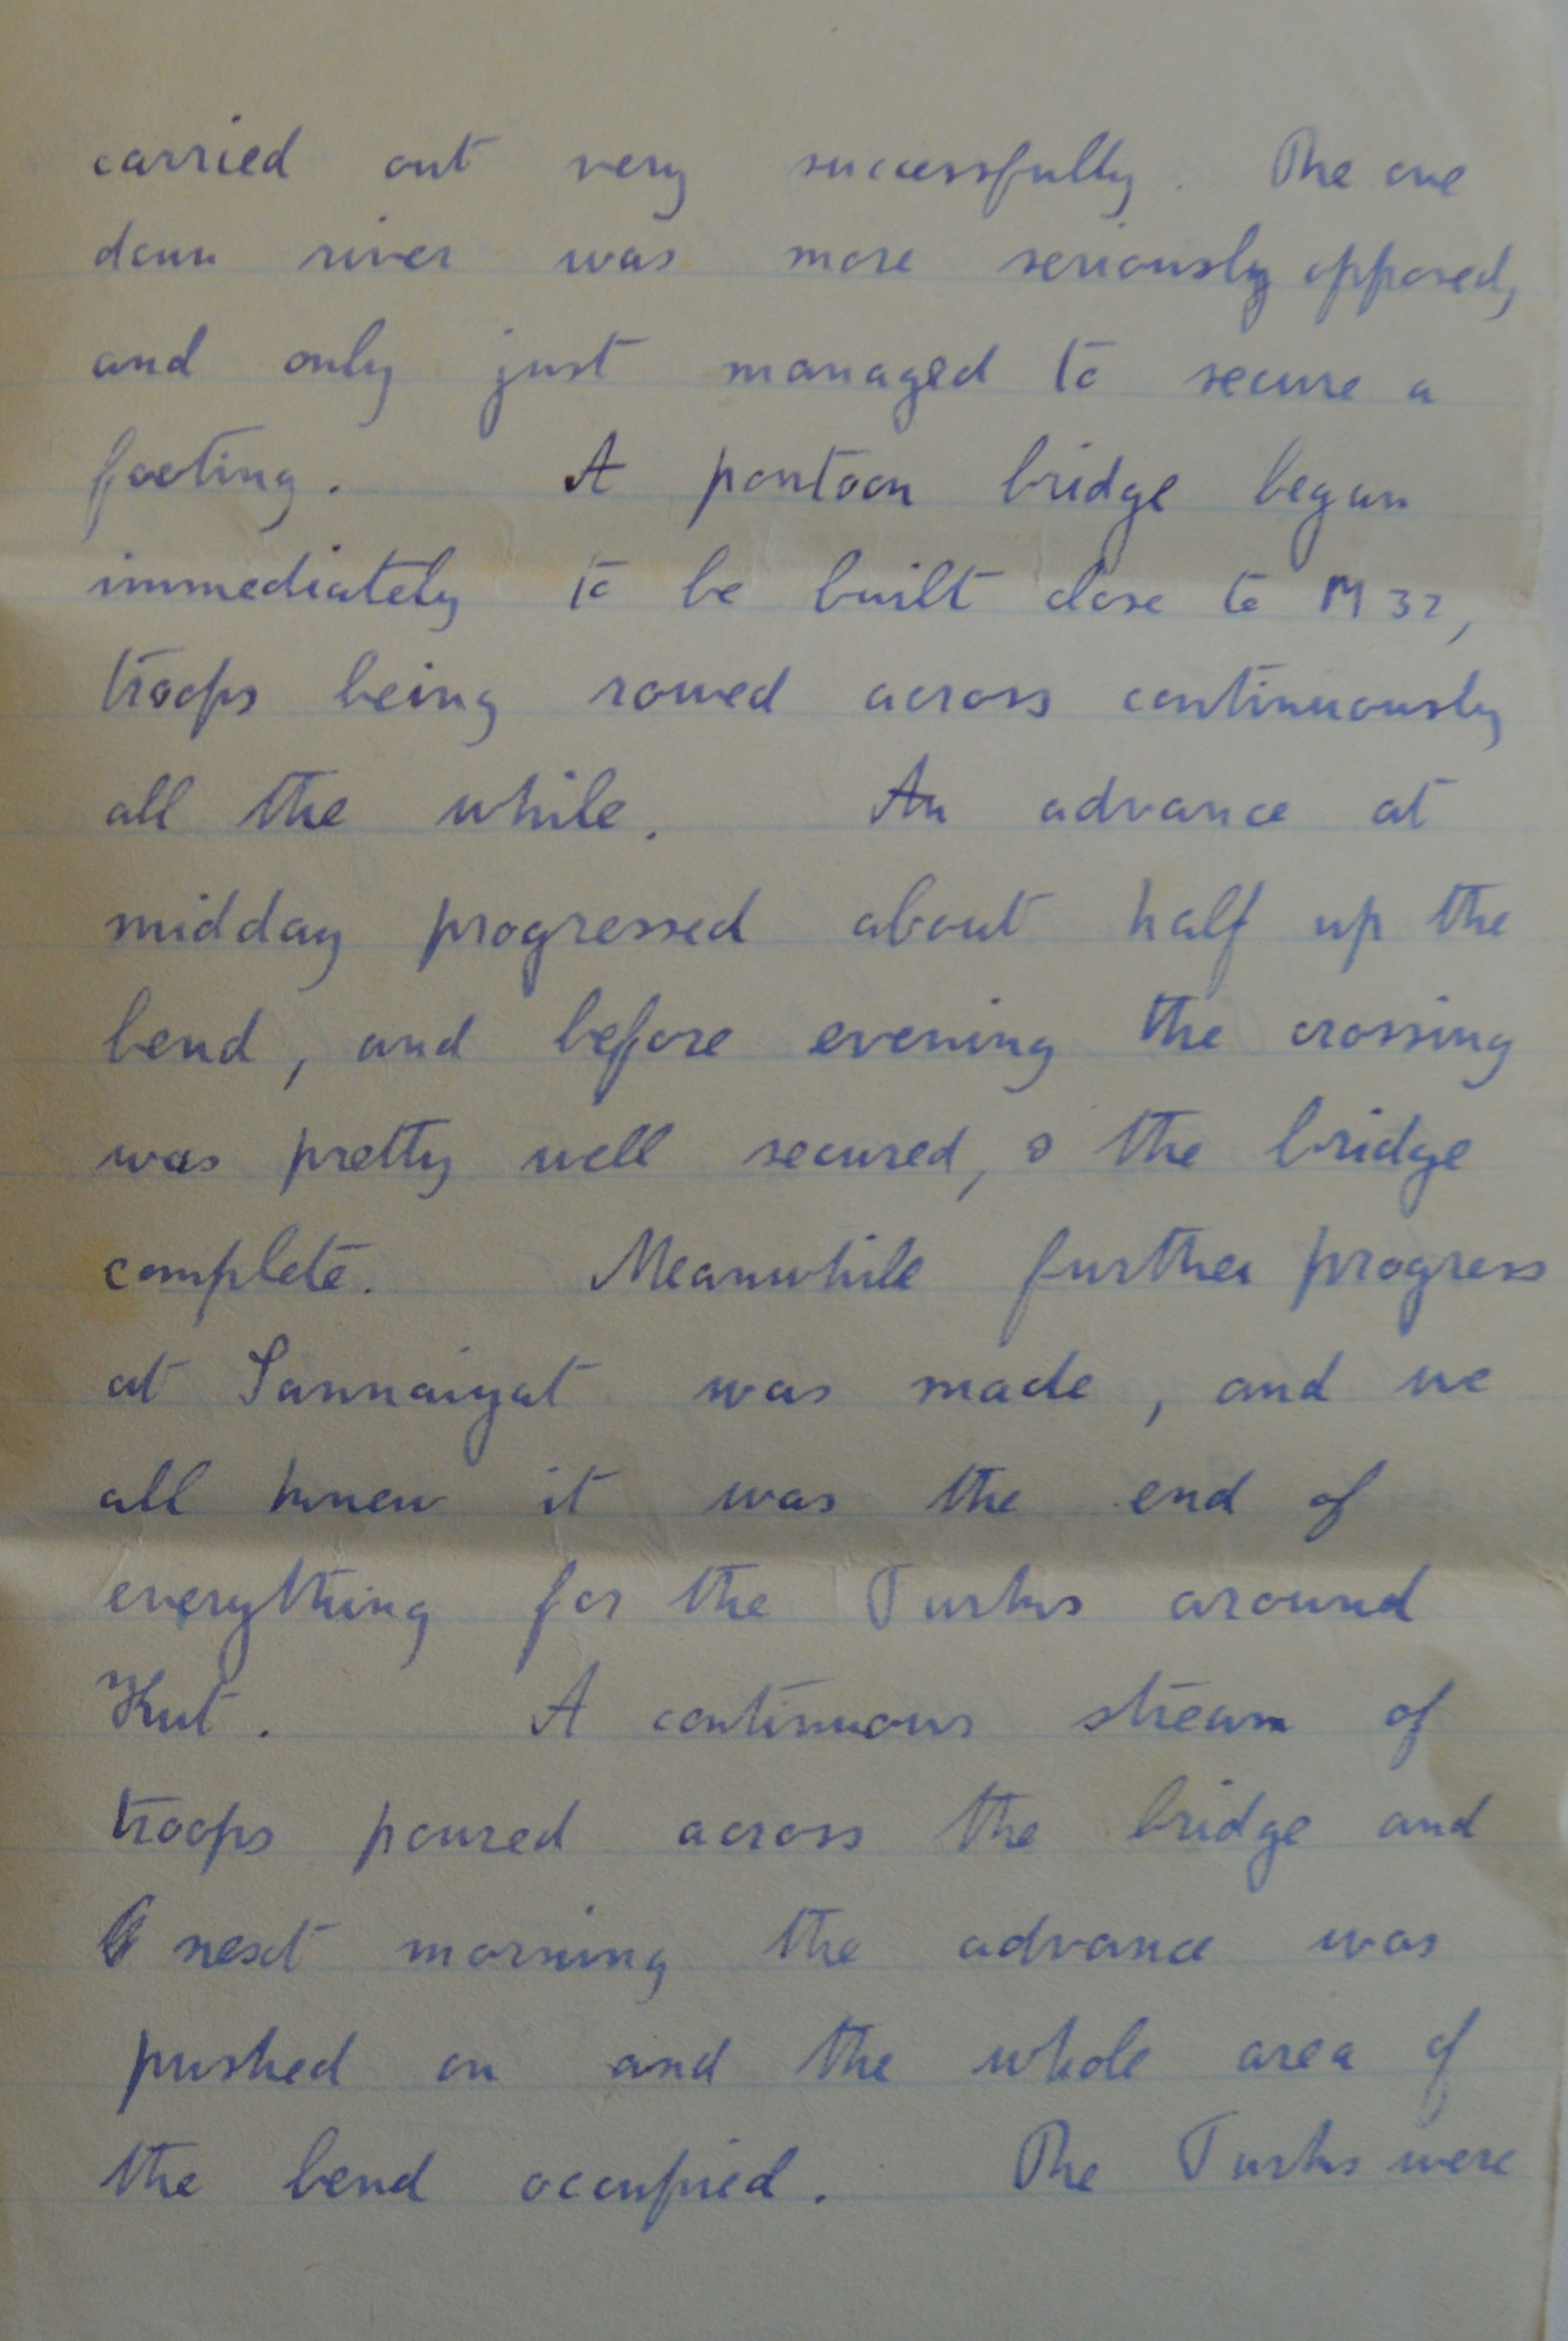 carried out very successfully. The one
down river was more seriously opposed,
and only just managed to secure a
footing. A pontoon bridge began
immediately to be built close to M 32,
troops being rowed across continuously
all the while. An advance at
midday progressed about half up the
bend, and before evening the crossing
was pretty well secured, & the bridge
complete. Meanwhile further progress
at Sannaiyat was made, and we
all knew it was the end of
everything for the Turks around
Kut. A continuous stream of
troops poured across the bridge and
next morning the advance was
pushed on and the whole area of
the bend occupied. The Turks were